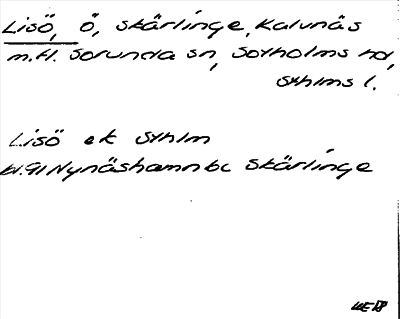 Lisö, Ö, Skärlinge, Kalvnäs
m.fl. Sorunda sn, Sotholms hd,
Sthlms l.
Lisö ek Sthlm
bl. 91 Nynäshamn bc Skärlinge